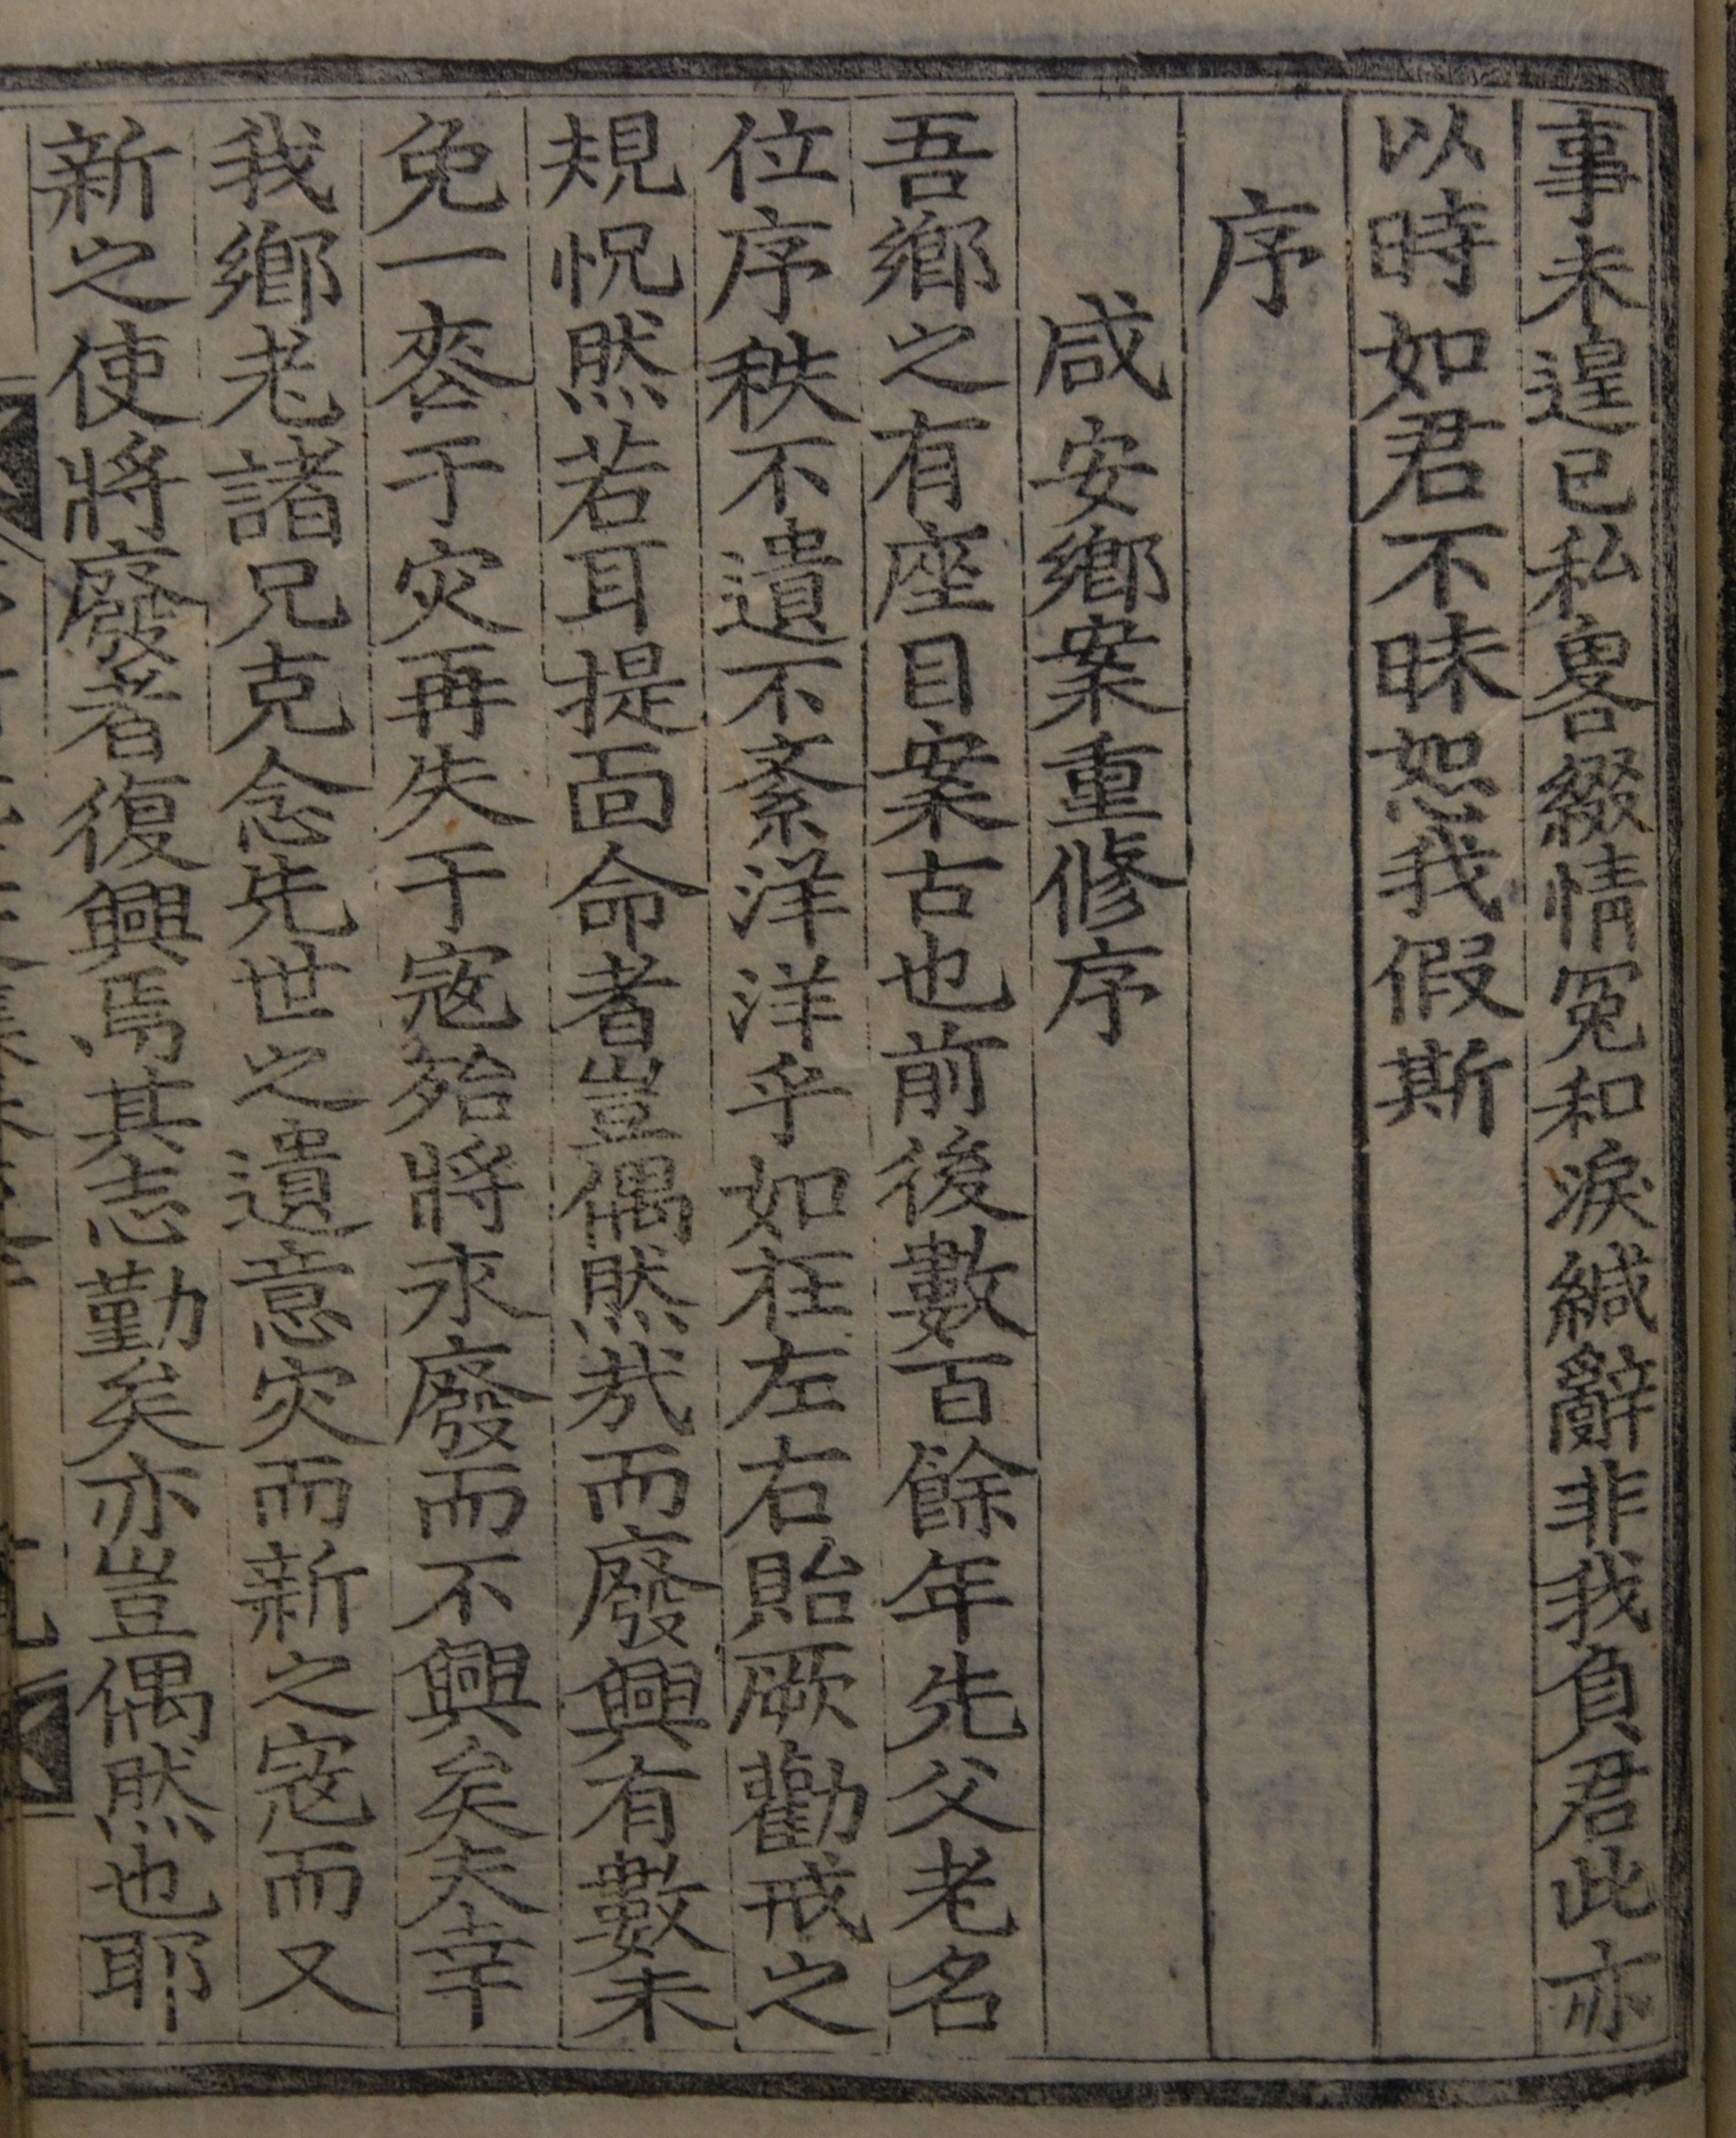 事未遑已私畧綴情寃和淚緘辭非我負君此亦
以時如君不昧恕我假斯
序
咸安鄕案重修序
吾鄕之有座目案古也前後數百餘年先父老名
位序秩不遺不紊洋洋乎如在左右貽厥勸戒之
規怳然若耳提面命者豈偶然哉而廢興有數未
免一厺于灾再失于寇殆將永廢而不興矣夫幸
我鄕老諸兄克念先世之遺意灾而新之寇而又
新之使將廢者復興焉其志勤矣亦豈偶然也耶